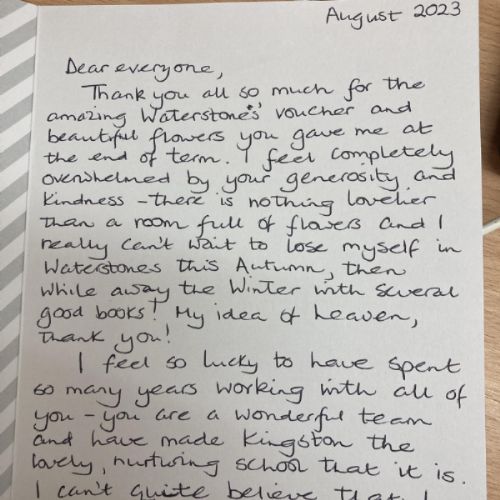 August 2023
Dear everyone,
Thank you all so much for the
amazing Waterstone's voucher and
beautiful flowers you gave me at
the end of term. I feel completely
overwhelmed by your generosity and
kindness – there is nothing lovelier
than a room full of flowers and I
really can't wait to lose myself in
Waterstones this Autumn, then
while away the Winter with several
good books! My idea of heaven,
thank you!
I feel so lucky to have spent
so many years working with all of
you – you are a wonderful team
and have made Kingston the
lovely, nurturing school that it is.
I can't quite believe that I